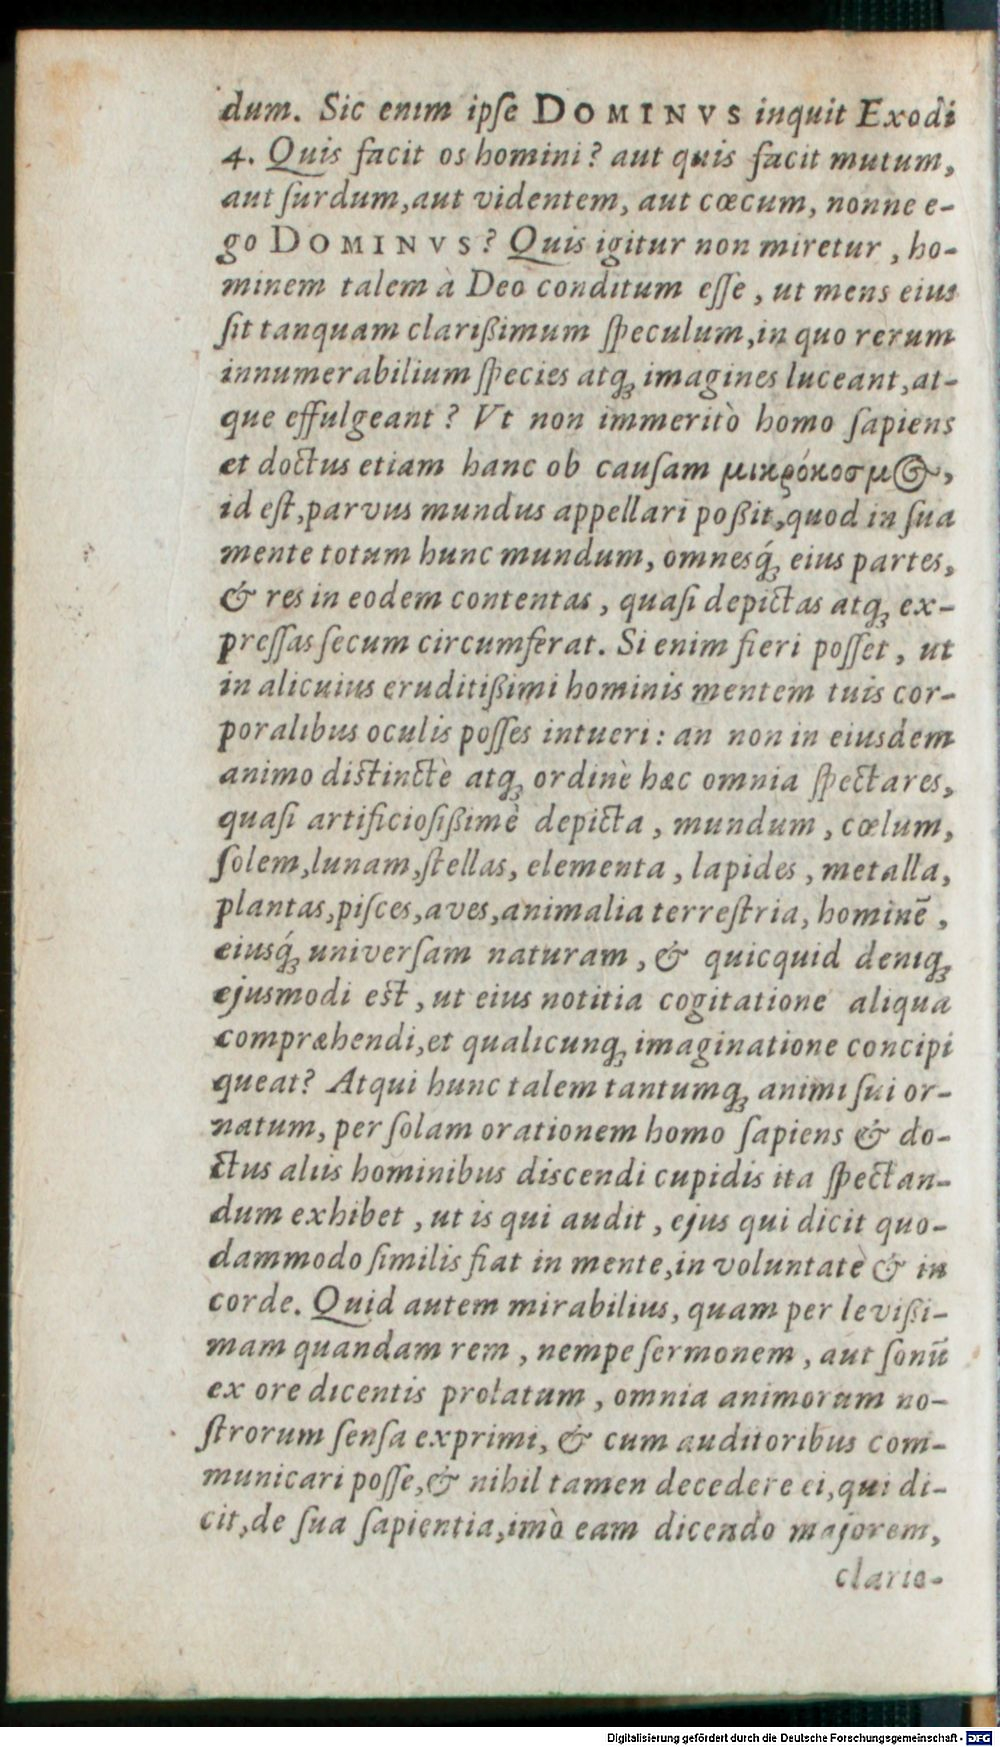 dum. Sic enim ipſe DOMINVS inquit Exodi
4. Quis facit os homini? aut quis facit mutum,
aut ſurdum, aut videntem, aut cœcum, nonne e-
go DOMINVS? Quis igitur non miretur, ho-
minem talem à Deo conditum eſſe, ut mens eius
ſit tanquam clarißimum ſpeculum, in quo rerum
innumerabilium ſpecies atq; imagines luceant, at-
que effulgeant? Vt non immeritò homo ſapiens
et doctus etiam hanc ob cauſam μικρόκοσμος,
id eſt, parvus mundus appellari poßit, quod in ſua
mente totum hunc mundum, omnesq́; eius partes,
& res in eodem contentas, quaſi depictas atq; ex-
preſſas ſecum circumferat. Si enim fieri poſſet, ut
in alicuius eruditißimi hominis mentem tuis cor-
poralibus oculis poſſes intueri: an non in eiusdem
animo distinctè atq; ordinè hæc omnia ſpectares,
quaſi artificioſißimè depicta, mundum, cœlum,
ſolem, lunam, ſtellas, elementa, lapides, metalla,
plantas, piſces, aves, animalia terreſtria, hominē,
eiusq́; univerſam naturam, & quicquid deniq;
ejusmodi est, ut eius notitia cogitatione aliqua
compræhendi, et qualicunq; imaginatione concipi
queat? Atqui hunc talem tantumq; animi ſui or-
natum, per ſolam orationem homo ſapiens & do-
ctus aliis hominibus discendi cupidis ita ſpectan-
dum exhibet, ut is qui audit, ejus qui dicit quo-
dammodo ſimilis fiat in mente, in voluntate & in
corde. Quid autem mirabilius, quam per levißi-
mam quandam rem, nempe ſermonem, aut ſonū
ex ore dicentis prolatum, omnia animorum no-
ſtrorum ſenſa exprimi, & cum auditoribus com-
municari poſſe, & nihil tamen decedere ei, qui di-
cit, de ſua ſapientia, imò eam dicendo majorem,
clario-
Digitalisierung gefördert durch die Deutsche Forschungsgemeinschaft - DFG